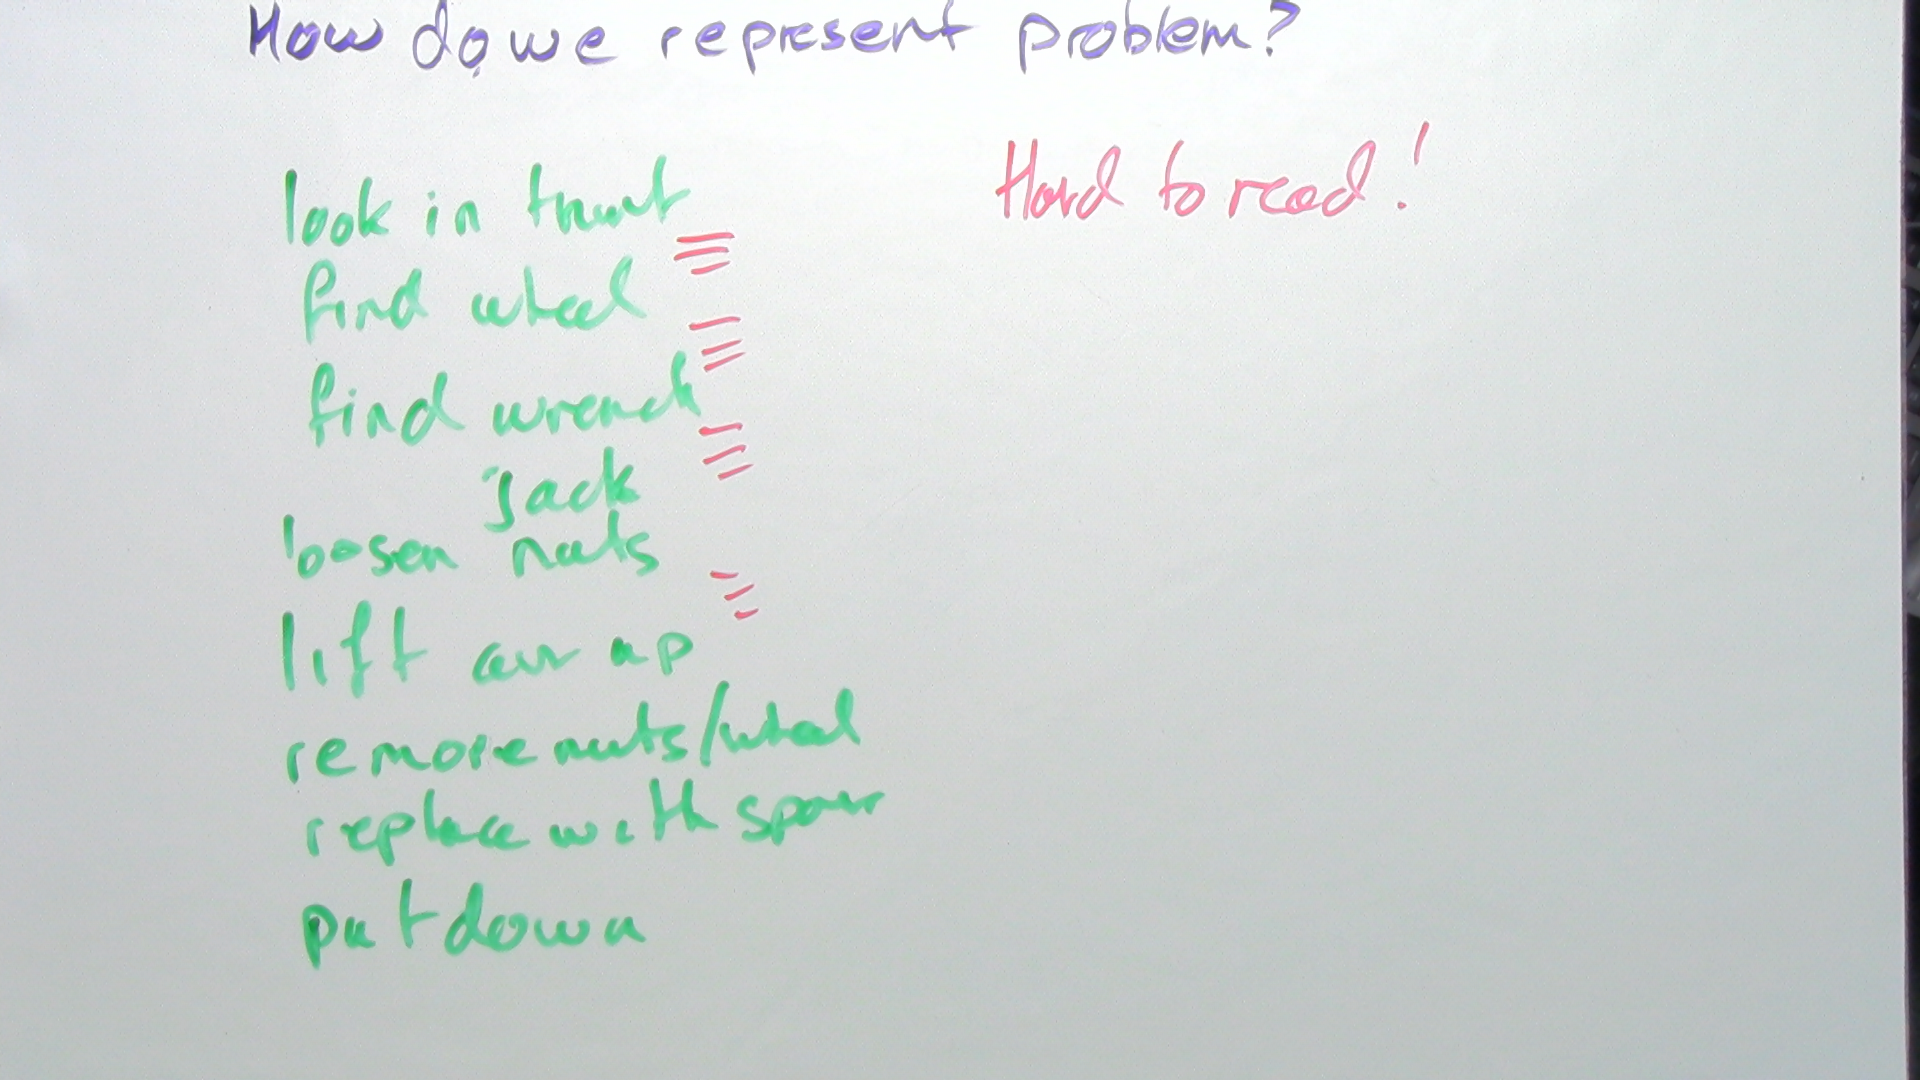 How do we represent problem?
Hard to read!
look in trunk
find wheel
find wrench
jack
loosen nuts
lift car up
remove nuts/wheel
replace with spare
put down